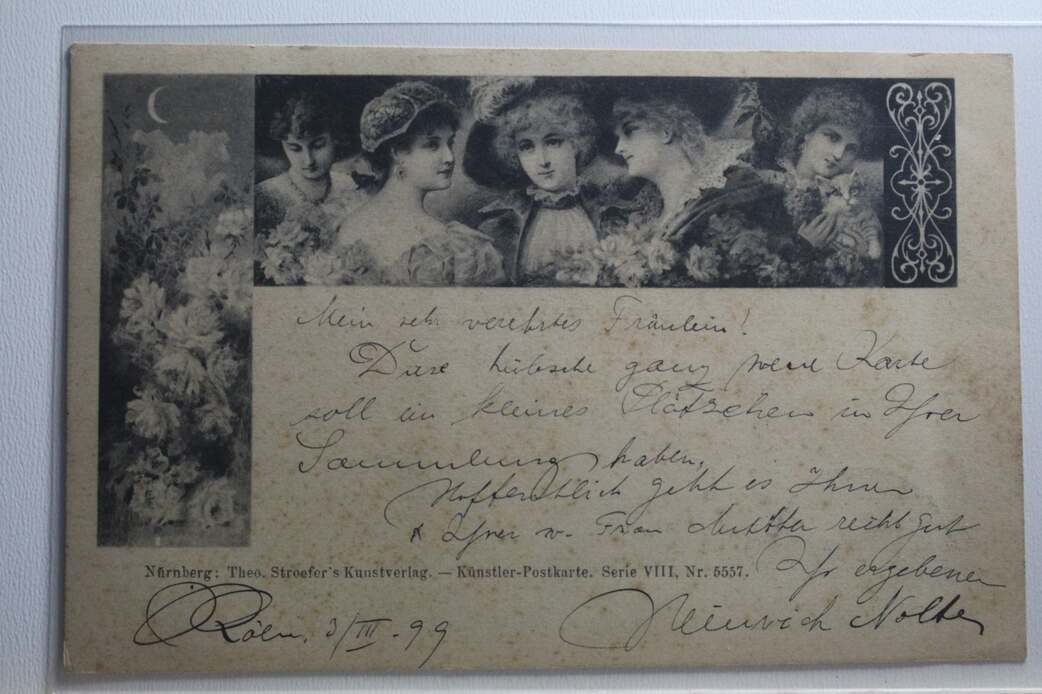 Mein sehr verehrtes Fräulein!
Diese hübsche ganz neue Karte
soll ein kleines Plätzchen in Ihrer
Sammlung haben.
Hoffentlich geht es Ihnen
& Ihrer w. Frau recht gut
Ihr ergebener
Nürnberg: Theo. Stroefer's Kunstverlag. — Künstler-Postkarte. Serie VIII, Nr. 5557.
Heinrich Nolte
Köln, 3/III - 99